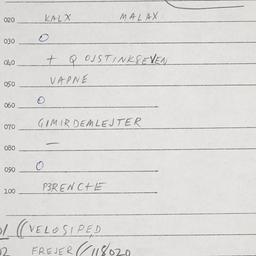 020 KALX MALAX
030 O
040 + Q OJSTINKSEVEN
050 VAPNE
060 O
070 GIMIRDEMLEJTER
080 —
090 O
100 P3RENCTE
01 ((VELOSIPED
02 FREJER ((118020